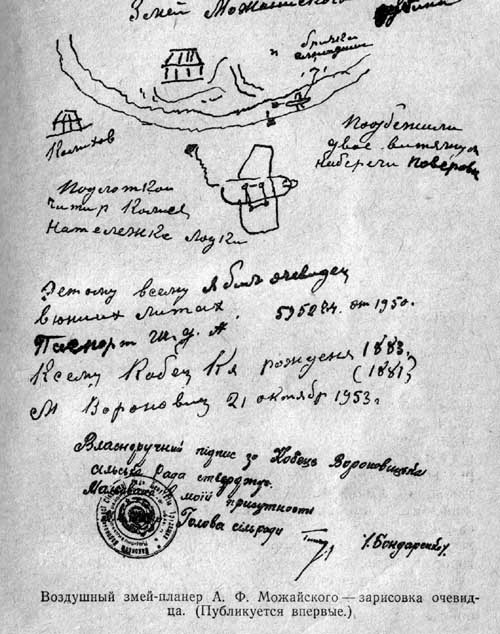 Змей Можайского
Подбежили
двае витянули
на беречи
Подлоткой
читир Колиса
На тележке лодки
Детому всему я был очевидец
в юних литах.
595284. от 1950.
Паспорт
Ксему Кобец К я рожденя 1883,
(1881)
М Вороновиц 21 октябр 1953 г
Власноручний підпис за Кобець Вороновицька
сільська Рада стверджує.
Малював в моїй присутності
Голова сільради
І. Бондаренко
Воздушный змей-планер А. Ф. Можайского — зарисовка очевид-
ца. (Публикуется впервые.)